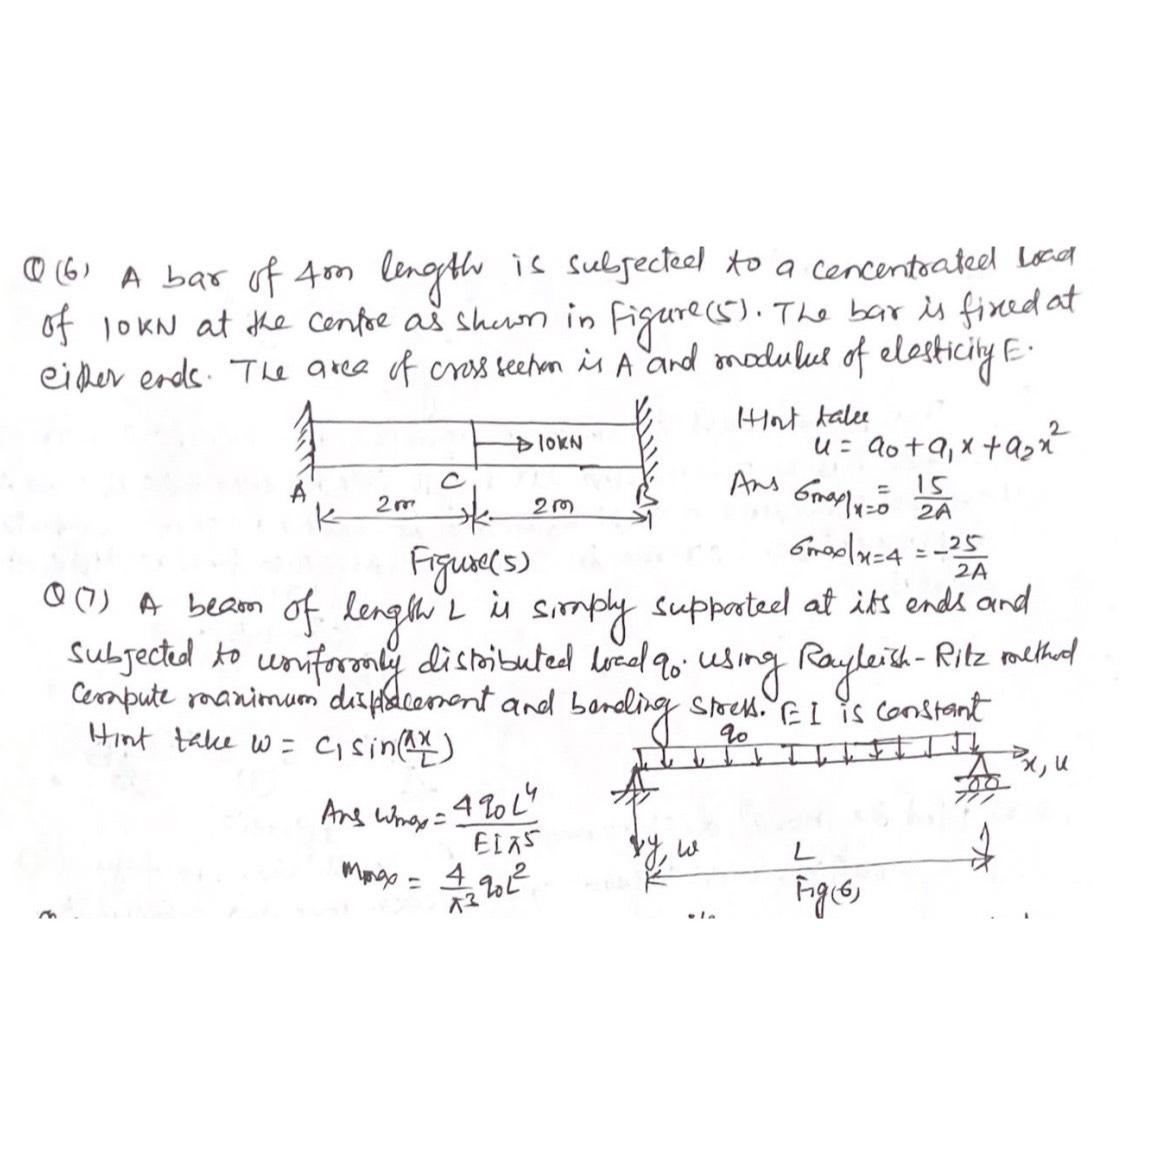 Q(6) A bar of 4m length is subjected to a concentrated load
of 10KN at the centre as shown in Figure(5). The bar is fixed at
either ends. The area of cross section is A and modulus of elasticity E.
Hint take
u = a₀ + a₁x + a₂x²
10KN
A
C
B
2m
2m
Figure(5)
Ans σmax|x=0 = 15/2A
σmax|x=4 = -25/2A
Q(7) A beam of length L is simply supported at its ends and
subjected to uniformly distributed load q₀. using Rayleish-Ritz method
Compute maximum displacement and bending stress. EI is constant
Hint take w = C₁ sin(πx/L)
Ans wmax = 4q₀L⁴/EIπ⁵
Mmax = 4/π³ q₀L²
q₀
x, u
y, w
L
Fig(6)